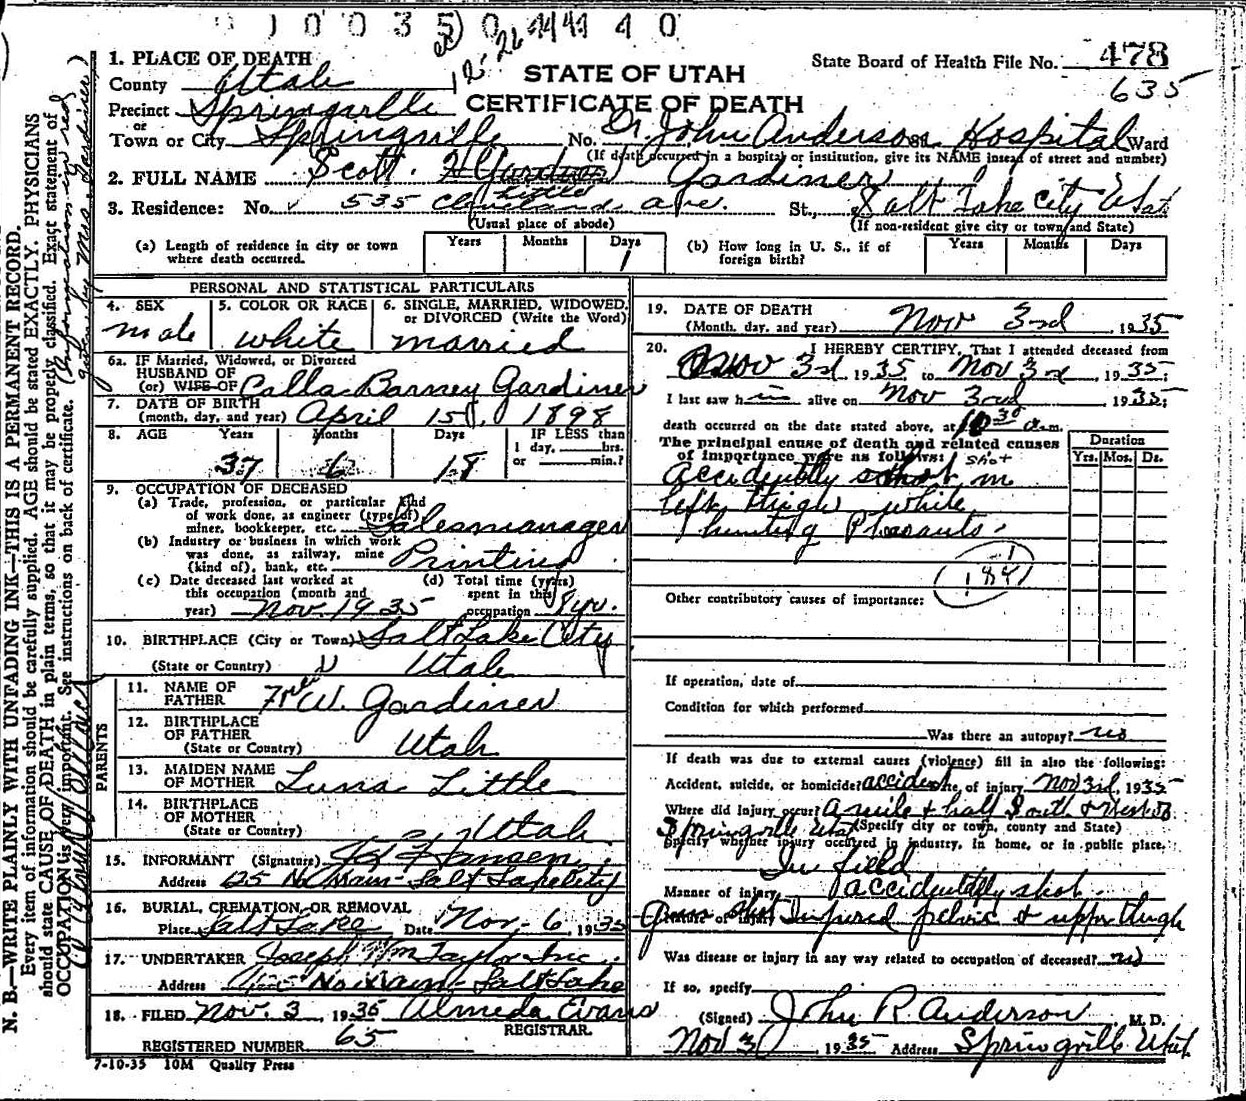 1 0 0 3 5 0 4 4 0
1. PLACE OF DEATH
State Board of Health File No. 478
County Utah
STATE OF UTAH
635
Precinct Springville
CERTIFICATE OF DEATH
or
Town or City Springville No. Dr. John Anderson St. Hospital Ward
(If death occurred in a hospital or institution, give its NAME insead of street and number)
2. FULL NAME Scott Gardiner
3. Residence: No. 535 Cleveland Ave. St., Salt Lake City Utah
(Usual place of abode)
(If non-resident give city or town and State)
(a) Length of residence in city or town where death occurred.
Years Months Days
1
(b) How long in U. S., if of foreign birth?
Years Months Days
PERSONAL AND STATISTICAL PARTICULARS
4. SEX
male
5. COLOR OR RACE
white
6. SINGLE, MARRIED, WIDOWED, or DIVORCED (Write the Word)
married
6a. IF Married, Widowed, or Divorced
HUSBAND OF
(or) WIFE OF Calla Barney Gardiner
7. DATE OF BIRTH
(month, day, and year) April 15, 1898
8. AGE Years Months Days
IF LESS than
1 day, hrs.
or min.?
37 6 18
9. OCCUPATION OF DECEASED
(a) Trade, profession, or particular kind
of work done, as engineer (type of)
miner, bookkeeper, etc. Salesmanager
(b) Industry or business in which work
was done, as railway, mine
(kind of), bank, etc. Printing
(c) Date deceased last worked at
this occupation (month and
year) Nov. 1935
(d) Total time (years)
spent in this
occupation 8 yr.
10. BIRTHPLACE (City or Town) Salt Lake City
(State or Country) Utah
PARENTS
11. NAME OF
FATHER Fred W. Gardiner
12. BIRTHPLACE
OF FATHER
(State or Country) Utah
13. MAIDEN NAME
OF MOTHER Luna Little
14. BIRTHPLACE
OF MOTHER
(State or Country) Utah
15. INFORMANT (Signature) Hansen
Address 125 No Main Salt Lake City
16. BURIAL, CREMATION, OR REMOVAL
Place Salt Lake Date Nov. 6, 1935
17. UNDERTAKER Joseph Wm Taylor Inc.
Address 125 No Main Salt Lake
18. FILED Nov. 3 1935 Almeda Evans
REGISTRAR.
REGISTERED NUMBER 65
7-10-35 10M Quality Press
19. DATE OF DEATH
(Month, day, and year) Nov 3rd, 1935
20. I HEREBY CERTIFY, That I attended deceased from
Nov 3rd, 1935 to Nov 3rd, 1935;
I last saw him alive on Nov 3rd, 1935;
death occurred on the date stated above, at 10 30 a.m.
The principal cause of death and related causes
of importance were as follows:
Duration
Yrs. Mos. Ds.
shot
accidently shot in
left thigh while
hunting Pheasants.
184
Other contributory causes of importance:
If operation, date of
Condition for which performed
Was there an autopsy? no
If death was due to external causes (violence) fill in also the following:
Accident, suicide, or homicide? accident Date of injury Nov 3rd, 1935
Where did injury occur? A mile & half South & West of
Springville Utah (Specify city or town, county and State)
Specify whether injury occurred in industry, in home, or in public place,
In field
Manner of injury accidentally shot
Nature of injury Gun shot Injured pelvis & upper thigh
Was disease or injury in any way related to occupation of deceased? no
If so, specify
(Signed) John R Anderson M. D.
Nov 3, 1935 Address Springville Utah
N. B.—WRITE PLAINLY WITH UNFADING INK—THIS IS A PERMANENT RECORD.
Every item of information should be carefully supplied. AGE should be stated EXACTLY. PHYSICIANS
should state CAUSE OF DEATH in plain terms, so that it may be properly classified. Exact statement of
OCCUPATION is very important. See instructions on back of certificate.
(Information in red
given by Mrs. Gardiner)